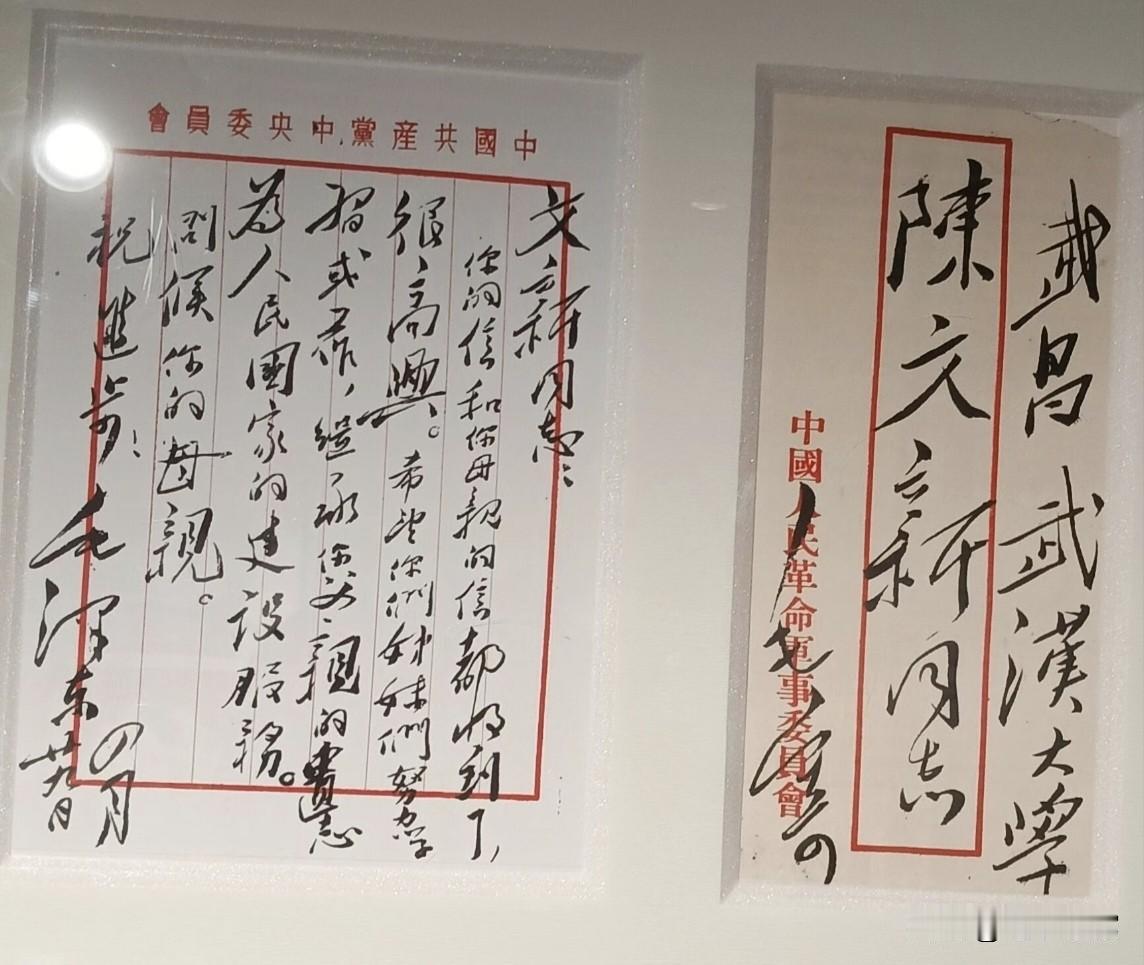 中國共產黨中央委員會
文新同志：
你的信和你母親的信都收到了，
很高興。希望你們姊妹們努力學
習或工作，繼承你父親的遺志
為人民國家的建設服務。
問候你的母親。
祝進步！
毛澤東
四月
廿九日
武昌武漢大學
陳文新同志
中國人民革命軍事委員會